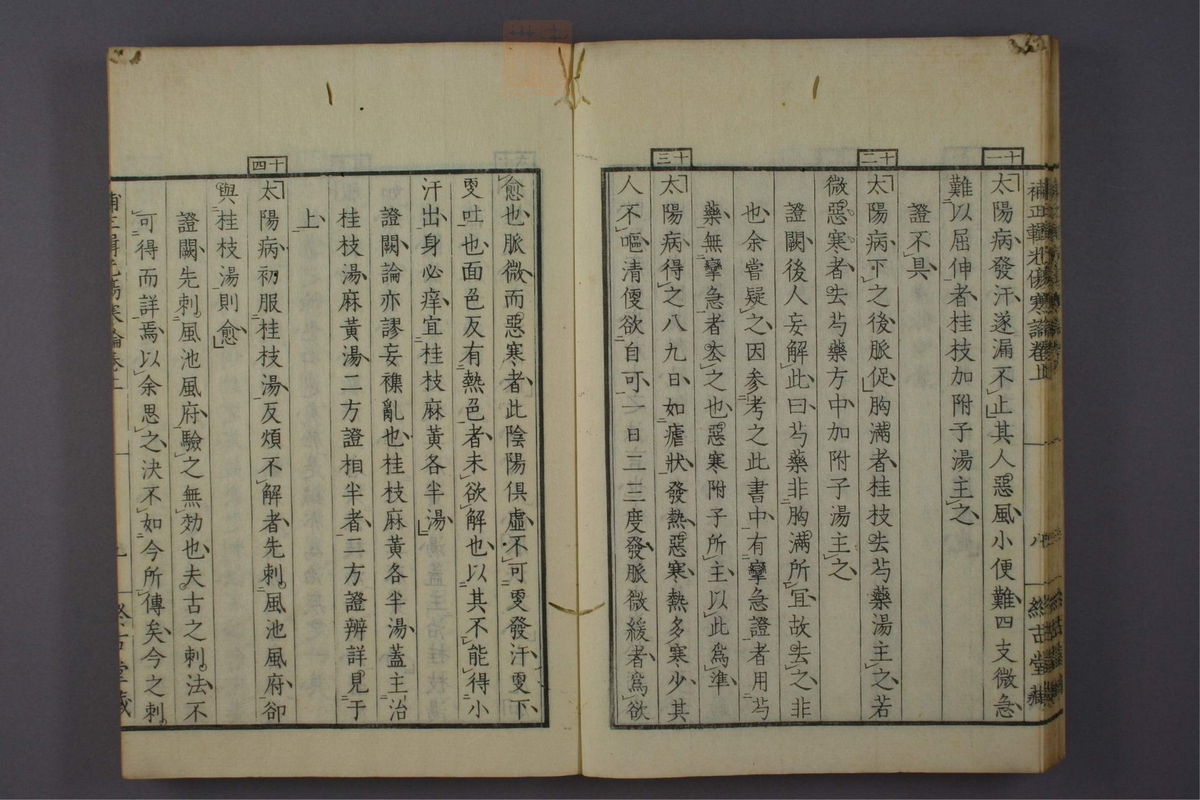 補正輯光傷寒論卷上 八 然古堂藏
十一
太陽病發汗遂漏不止其人惡風小便難四支微急
難以屈伸者桂枝加附子湯主之
證不具
十二
太陽病下之後脈促胸滿者桂枝去芍藥湯主之若
微惡寒者去芍藥方中加附子湯主之
證闕後人妄解此曰芍藥非胸滿所宜故去之非
也余嘗疑之因參考之此書中有攣急證者用芍
藥無攣急者去之也惡寒附子所主以此爲準
十三
太陽病得之八九日如瘧狀發熱惡寒熱多寒少其
人不嘔清便欲自可一日二三度發脈微緩者爲欲
愈也脈微而惡寒者此陰陽俱虛不可更發汗更下
更吐也面色反有熱色者未欲解也以其不能得小
汗出身必痒宜桂枝麻黃各半湯
證闕論亦謬妄襍亂也桂枝麻黃各半湯蓋主治
桂枝湯麻黃湯二方證相半者二方證辨詳見于
上
十四
太陽病初服桂枝湯反煩不解者先刺風池風府卻
與桂枝湯則愈
證闕先刺風池風府驗之無効也夫古之刺法不
可得而詳焉以余思之決不如今所傳矣今之刺
補正輯光傷寒論卷上 九 然古堂藏